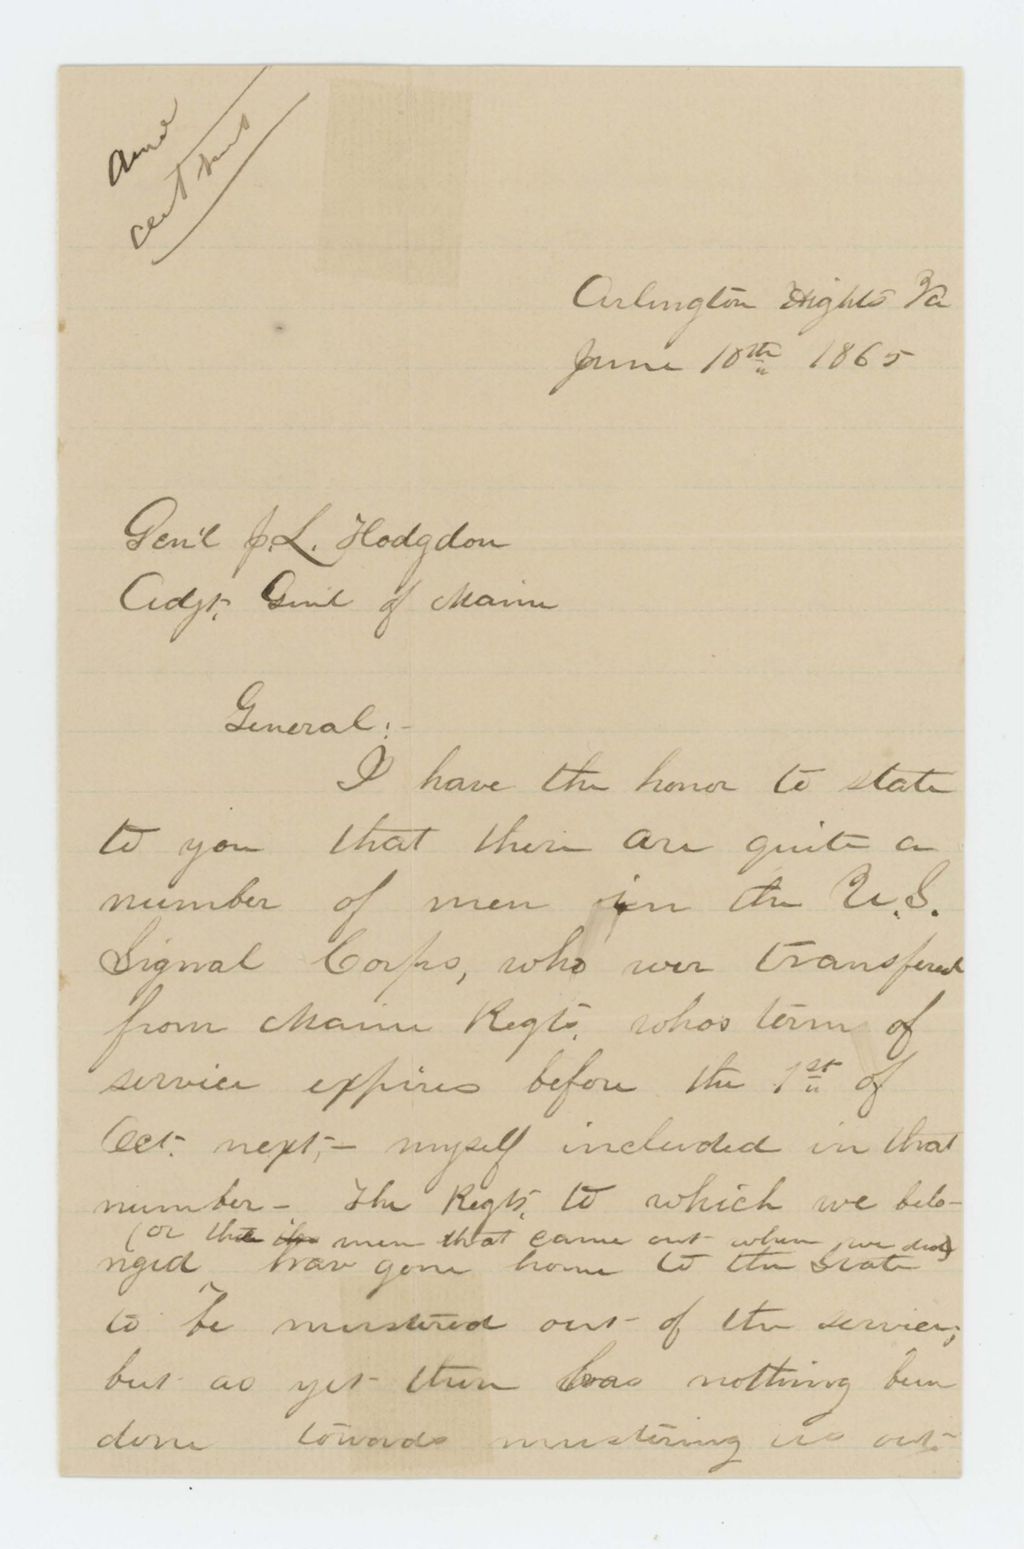 Arlington Hights Va
June 10th 1865
Gen'l J. L. Hodgdon
Adgt. Gen'l of Maine
General:-
I have the honor to state
to you that there are quite a
number of men in the U.S.
Signal Corps, who wer transfered
from Maine Regts. whos term of
service expires before the 1st of
Oct. next,- myself included in that
number- The Regts. to which we belo-
(or the men that came out when we did)
nged hav gone home to the State
to be mustered out of the service;
but as yet there has nothing been
done towards mustering us out-